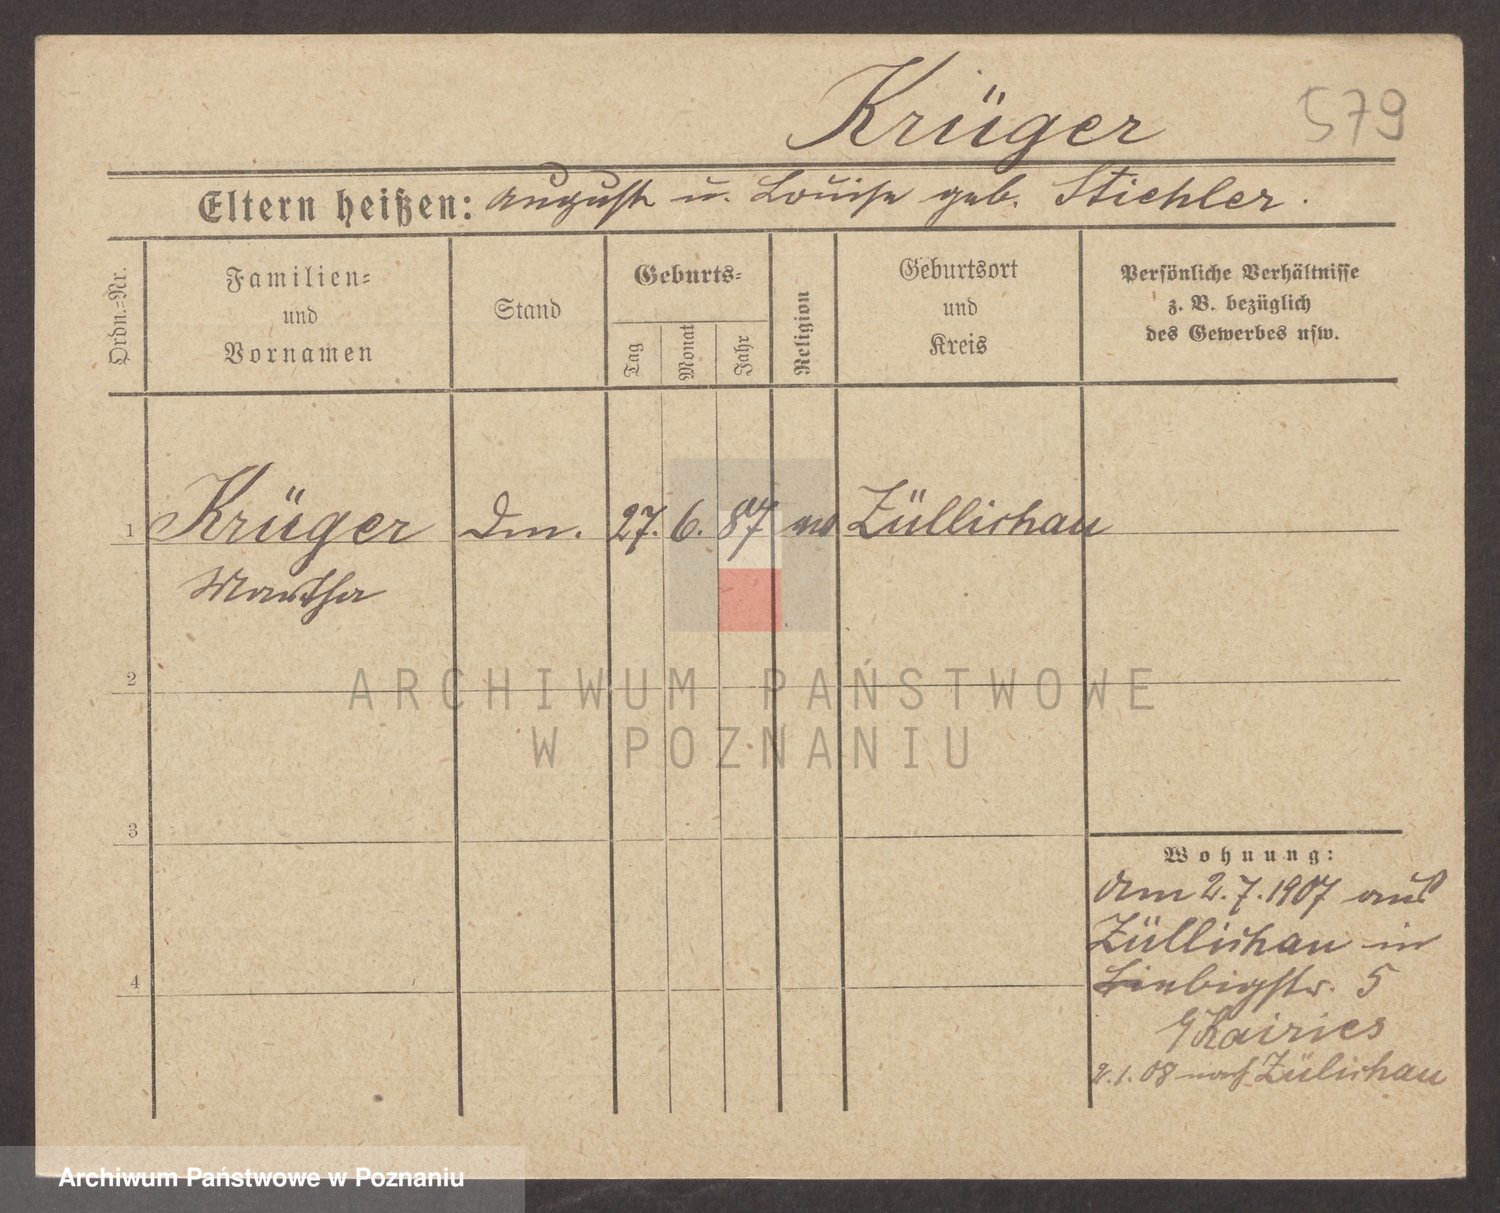 Krüger 579
Eltern heißen: August u. Louise geb. Stiehler.
Ordn.=Nr.
Familien=
und
Vornamen
Stand
Geburts=
Tag
Monat
Jahr
Religion
Geburtsort
und
Kreis
Persönliche Verhältnisse
z. B. bezüglich
des Gewerbes usw.
1 Krüger 27. 6. 87 Züllichau
Martha
2
3
4
Wohnung:
Am 2.7.1907 aus
Züllichau in
Liebigstr. 5
Kairies
2.1.08 nach Zülichau
ARCHIWUM PAŃSTWOWE
W POZNANIU
Archiwum Państwowe w Poznaniu